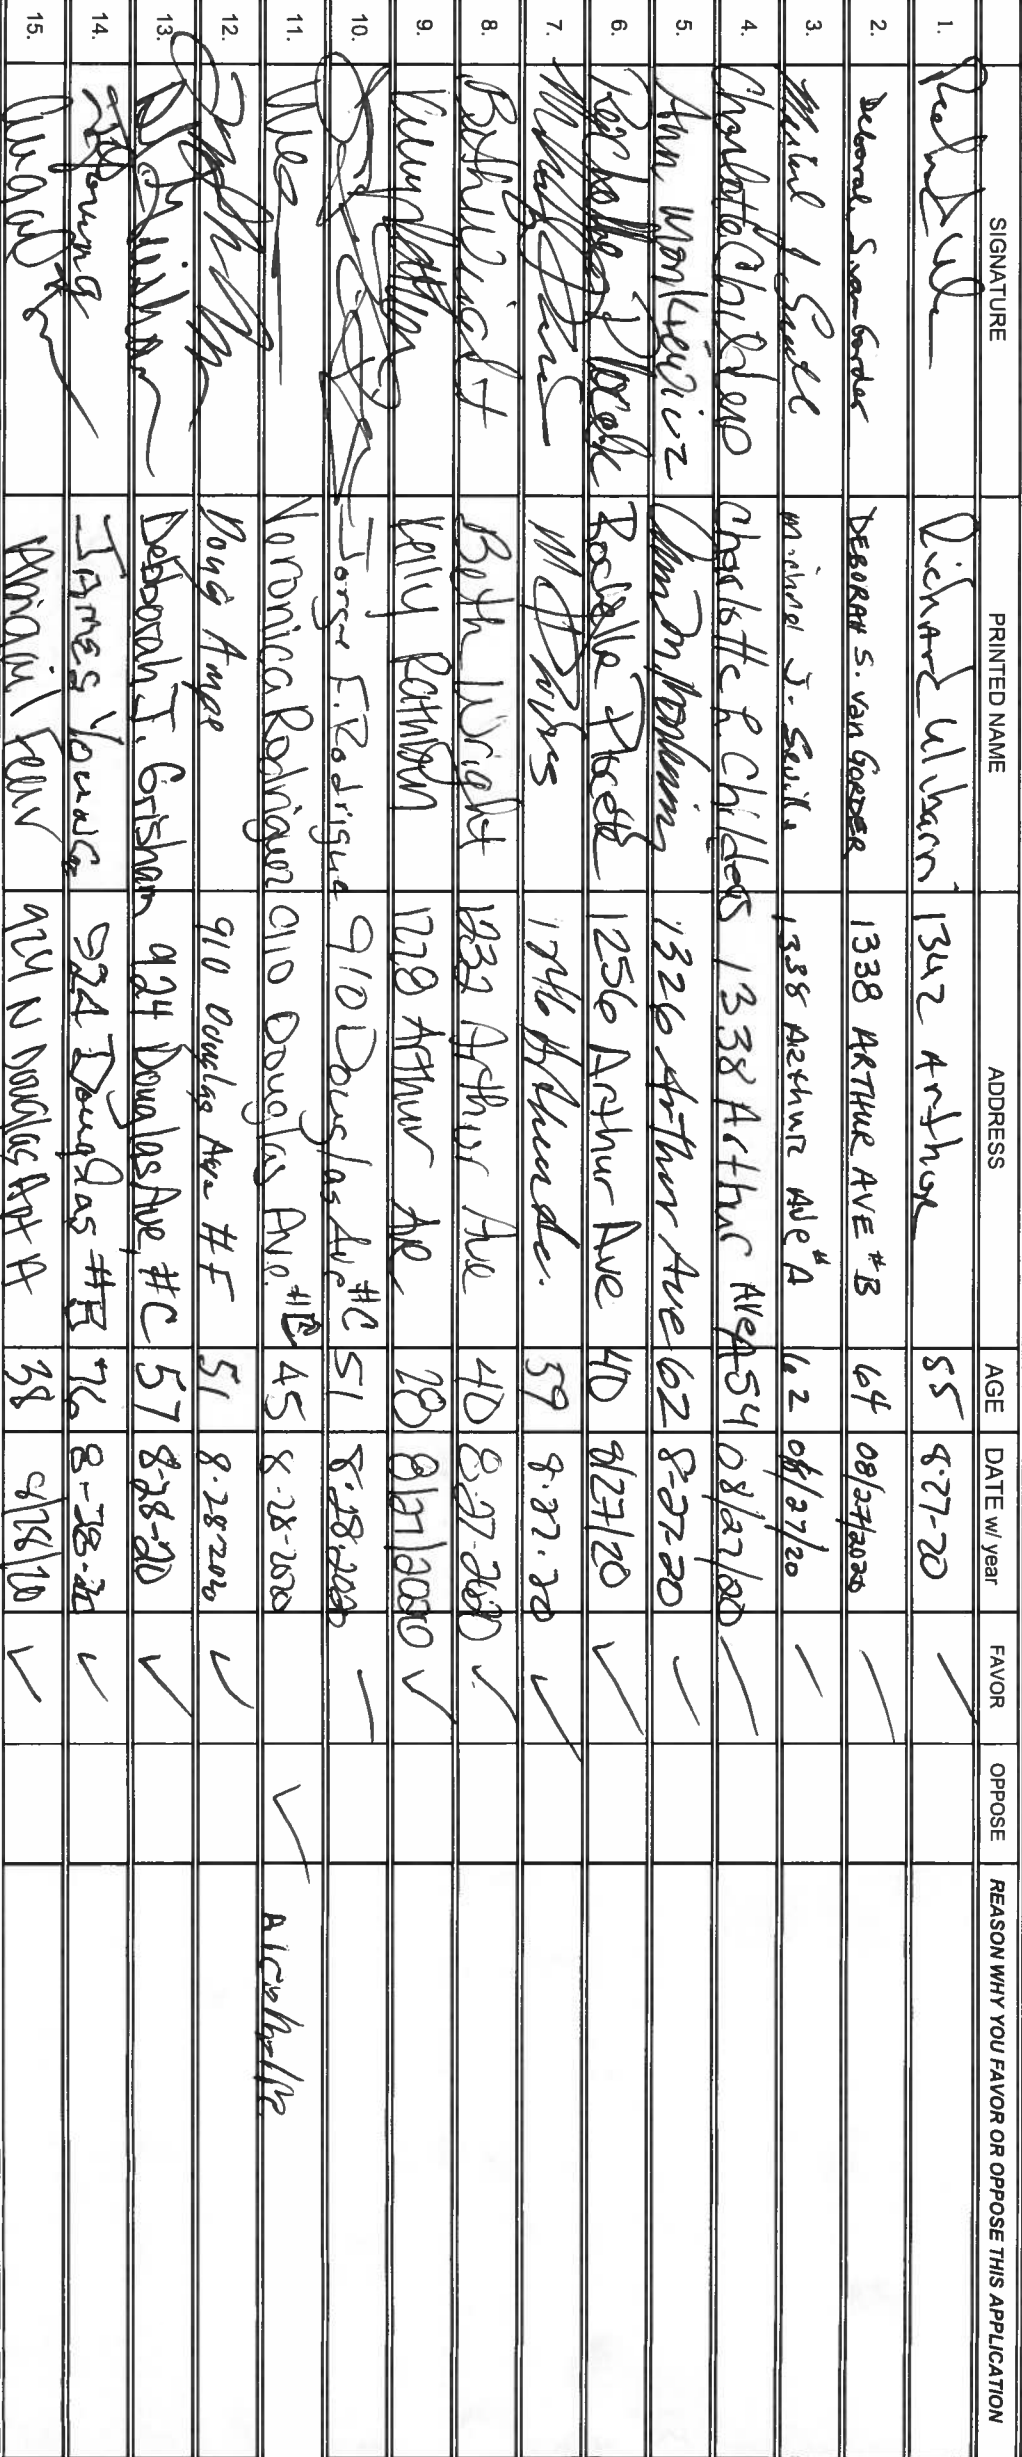 SIGNATURE PRINTED NAME ADDRESS AGE DATE w/ year FAVOR OPPOSE REASON WHY YOU FAVOR OR OPPOSE THIS APPLICATION
1. Richard Ulibarri 1342 Arthur 55 8-27-20
2. Deborah S. van Gorder DEBORAH S. van GORDER 1338 ARTHUR AVE #B 64 08/27/2020
3. Michael J. Michael J. 1338 Arthur Ave #A 62 08/27/20
4. Charlotte Childers Charlotte R. Childers 1338 Arthur Ave A 54 08/27/20
5. Ann 1326 Arthur Ave 62 8-27-20
6. Rochelle Placek Rochelle Placek 1256 Arthur Ave 40 8/27/20 ✓
7. 59 8.27.20 ✓
8. Beth Wright Beth Wright 1232 Arthur Ave 40 8-27-2020 ✓
9. Kelly Rathbun Kelly Rathbun 1228 Arthur Ave 28 8/27/2020 ✓
10. Jorge F. Rodriguez 910 Douglas Ave #C 51 8.28.2020
11. Veronica Rodriguez 910 Douglas Ave. 45 8-28-2020 ✓
12. Doug 910 Douglas Ave #F 51 8-28-2020 ✓
13. Deborah J. Grisham 924 Douglas Ave, #C 57 8-28-20 ✓
14. Young JAMES YOUNG 924 Douglas #E 76 8-28-20 ✓
15. Abigail 924 N Douglas Apt A 38 8/28/20 ✓